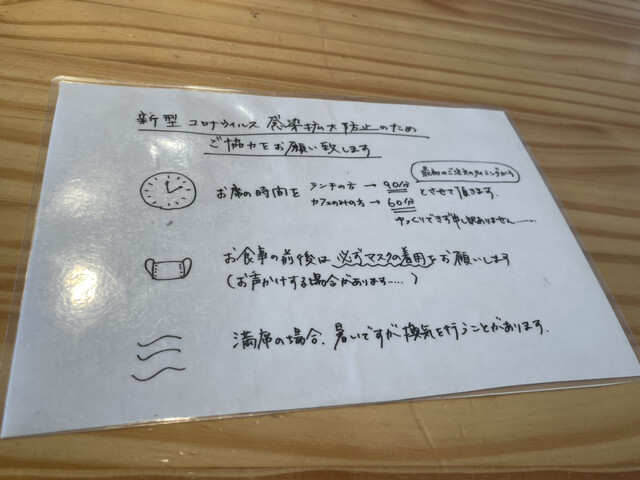 新型コロナウイルス感染拡大防止のため
ご協力をお願い致します
最初のご注文のタイミングから
お席の時間を ランチの方 → 90分 とさせて頂きます。
カフェのみの方 → 60分
ゆっくりできず申し訳ありません……
お食事の前後は必ずマスクの着用をお願いします
(お声かけする場合があります……)
満席の場合、暑いですが換気を行うことがあります。